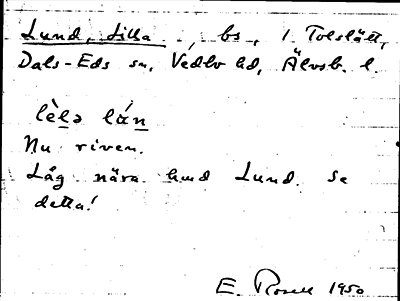 Lund, Lilla, bs, 1 Tolslätt,
Dals-Eds sn, Vedbo hd, Älvsb. l.
lèlə lán
Nu riven.
Låg nära hmd Lund. Se
detta!
E. Rosell 1950